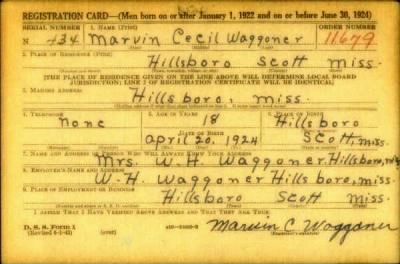 REGISTRATION CARD—(Men born on or after January 1, 1922 and on or before June 30, 1924)
SERIAL NUMBER 1. NAME (Print) ORDER NUMBER
N 434 Marvin Cecil Waggoner 11679
2. PLACE OF RESIDENCE (Print)
Hillsboro Scott Miss.
[THE PLACE OF RESIDENCE GIVEN ON THE LINE ABOVE WILL DETERMINE LOCAL BOARD
JURISDICTION; LINE 2 OF REGISTRATION CERTIFICATE WILL BE IDENTICAL]
3. MAILING ADDRESS
Hillsboro, Miss.
4. TELEPHONE 5. AGE IN YEARS 6. PLACE OF BIRTH
None 18 Hillsboro
DATE OF BIRTH
April 20, 1924 Scott, Miss.
7. NAME AND ADDRESS OF PERSON WHO WILL ALWAYS KNOW YOUR ADDRESS
Mrs. W. H. Waggoner. Hillsboro,
8. EMPLOYER'S NAME AND ADDRESS
W. H. Waggoner Hillsboro, Miss.
9. PLACE OF EMPLOYMENT OR BUSINESS
Hillsboro Scott Miss
I AFFIRM THAT I HAVE VERIFIED ABOVE ANSWERS AND THAT THEY ARE TRUE.
D. S. S. Form 1
Marvin C Waggoner